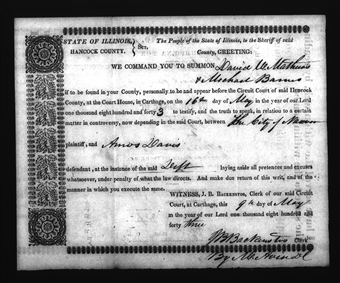 STATE OF ILLINOIS, The People of the State of Illinois, to the Sheriff of said
HANCOCK COUNTY. Sct. County, GREETING:
WE COMMAND YOU TO SUMMON David W. Mathews
& Michael Barnes
if to be found in your County, personally to be and appear before the Circuit Court of said Hancock
County, at the Court House, in Carthage, on the 16th day of May in the year of our Lord
one thousand eight hundred and forty 3 to testify, and the truth to speak, in relation to a certain
matter in controversy, now depending in the said Court, between the City of Nauvoo
plaintiff, and Amos Davis
defendant, at the instance of the said Deft laying aside all pretences and excuses
whatsoever, under penalty of what the law directs. And make due return of this writ, and of the
manner in which you execute the same.
WITNESS, J. B. BACKENSTOS, Clerk of our said Circuit
Court, at Carthage, this 9th day of May
in the year of our Lord one thousand eight hundred and
forty three
JB Backenstos Clerk
By